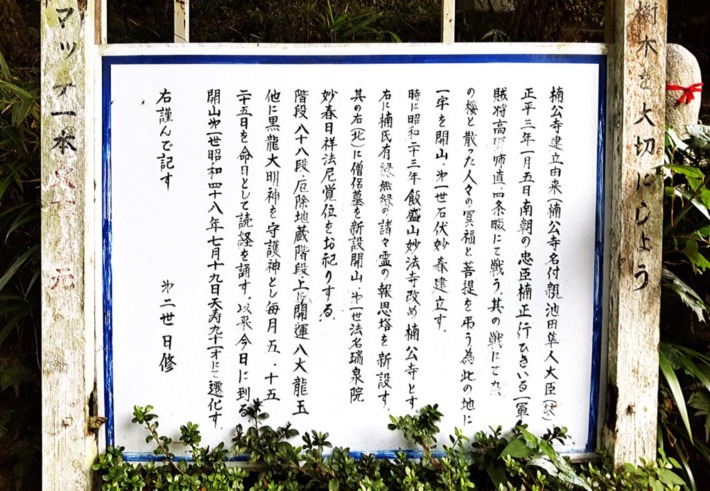 樹木を大切にしょう
楠公寺建立由来(楠公寺名付親池田隼人大臣(故)
正平三年一月五日南朝の忠臣楠正行ひきいる一軍
賊将高師直四条畷にて戦う、其の戦にて
の桜と散った人々の冥福と菩提を弔う為此の地に
一宇を開山、㐧一世石伏妙春建立す、
時に昭和二十三年飯盛山妙法寺改め楠公寺とす、
右に楠氏有縁無縁の諸々霊の報恩塔を新設す、
其の右(北)に僧侶墓を新設開山、㐧一世法名瑞泉院
妙春日祥法尼覚位をお祀りする、
階段八十八段厄除地蔵階段上に開運八大龍王
他に黒龍大明神を守護神とし毎月五、十五
二十五日を命日として読経を誦す、以来今日に到る
開山㐧一世昭和四十八年七月十九日天寿九十一才に遷化す、
右謹んで記す
㐧二世日修
マッチ一本火元